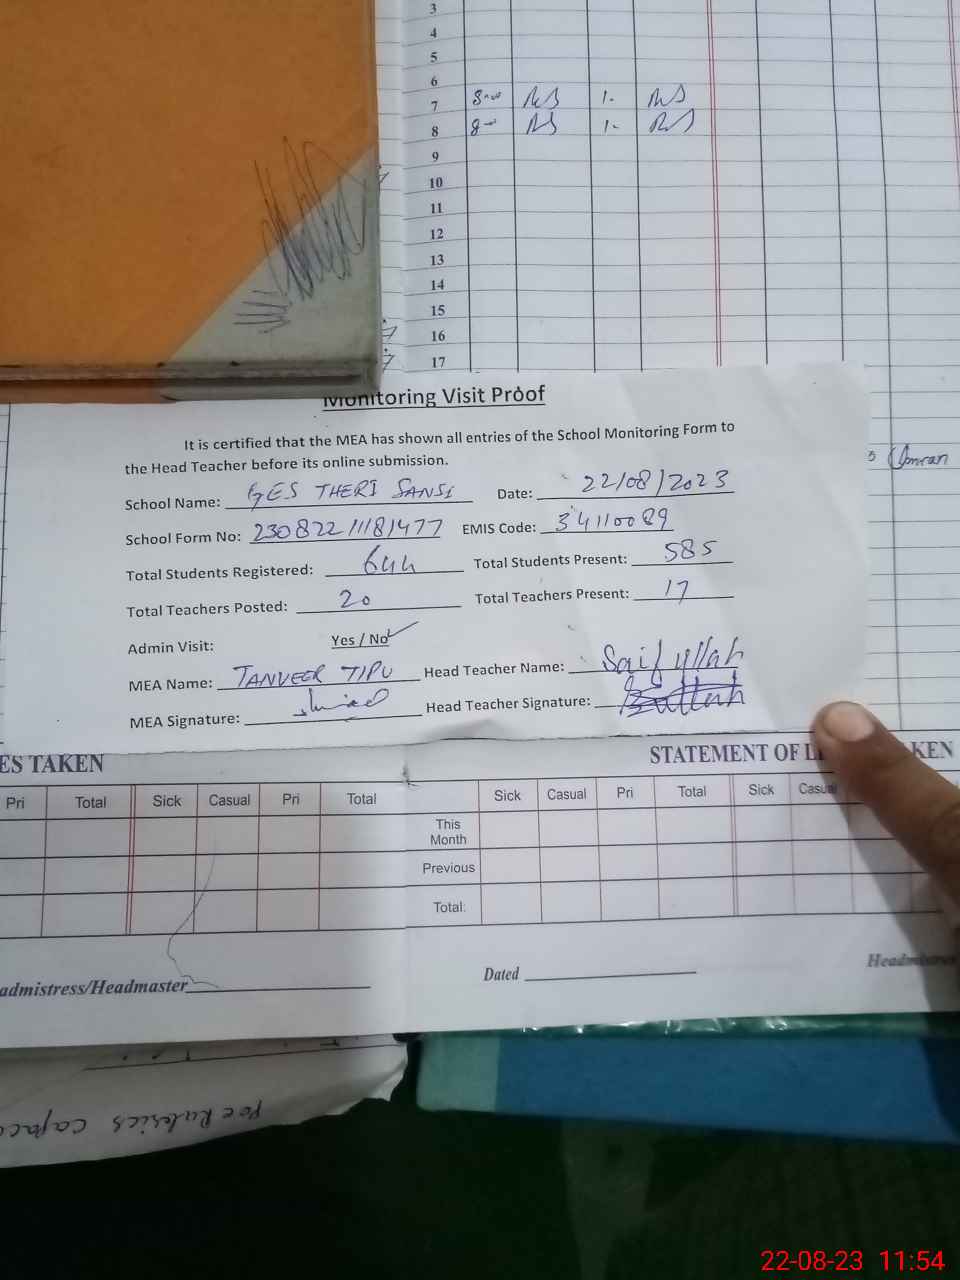 3
4
5
6
7
8
9
10
11
12
13
14
15
16
17
Monitoring Visit Proof
It is certified that the MEA has shown all entries of the School Monitoring Form to
the Head Teacher before its online submission.
School Name: GES THERI SANSI Date: 22/08/2023
School Form No: EMIS Code: 34110089
Total Students Registered: 644 Total Students Present: 585
Total Teachers Posted: 20 Total Teachers Present: 17
Admin Visit: Yes / No
MEA Name: TANVEER TIPU Head Teacher Name: Saif ullah
MEA Signature: Head Teacher Signature:
Imran
ES TAKEN STATEMENT OF L KEN
Pri Total Sick Casual Pri Total Sick Casual Pri Total Sick Casual
This
Month
Previous
Total:
admistress/Headmaster Dated Headmistres
22-08-23 11:54